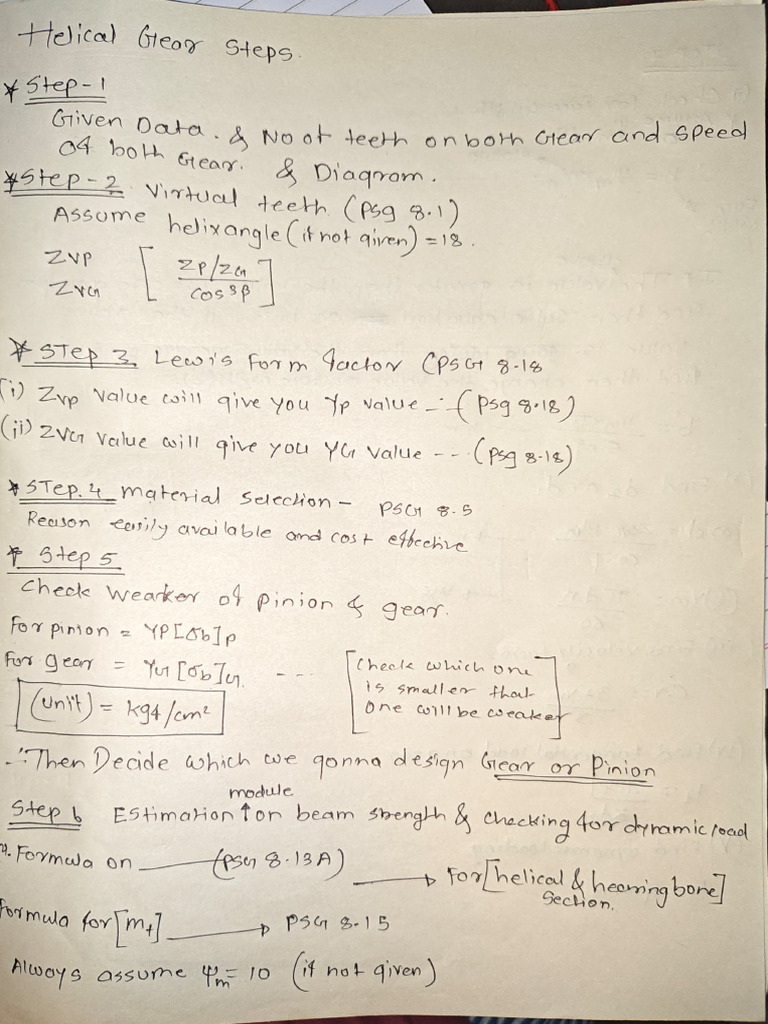 Helical Gear Steps.
* Step-1
Given Data. & No of teeth on both Gear and speed
of both Gear. & Diagram.
* Step-2 Virtual teeth (Psg 8.1)
Assume helix angle (if not given) = 18.
ZVP [ ZP/ZG
ZVG cos³β ]
* STep 3 Lewis form factor (PSG 8-18
(i) Zvp value will give you Yp value -- (Psg 8.18)
(ii) ZVG value will give you YG value --- (Psg 8-18)
* STep.4 material Selection - PSG 8.5
Reason easily available and cost effective
* Step 5
Check weaker of pinion & gear.
For pinion = YP[σb]P
For gear = YG[σb]G. --- [Check which one
is smaller that
one will be weaker]
(unit) = kgf/cm²
∴ Then Decide which we gonna design Gear or Pinion
module
Step 6 EStimation ↑ on beam strength & checking for dynamic load
Formula on (PSG 8.13A) → For [helical & hearring bone]
Section.
Formula for [mt] → PSG 8.15
Always assume Ψm = 10 (if not given)